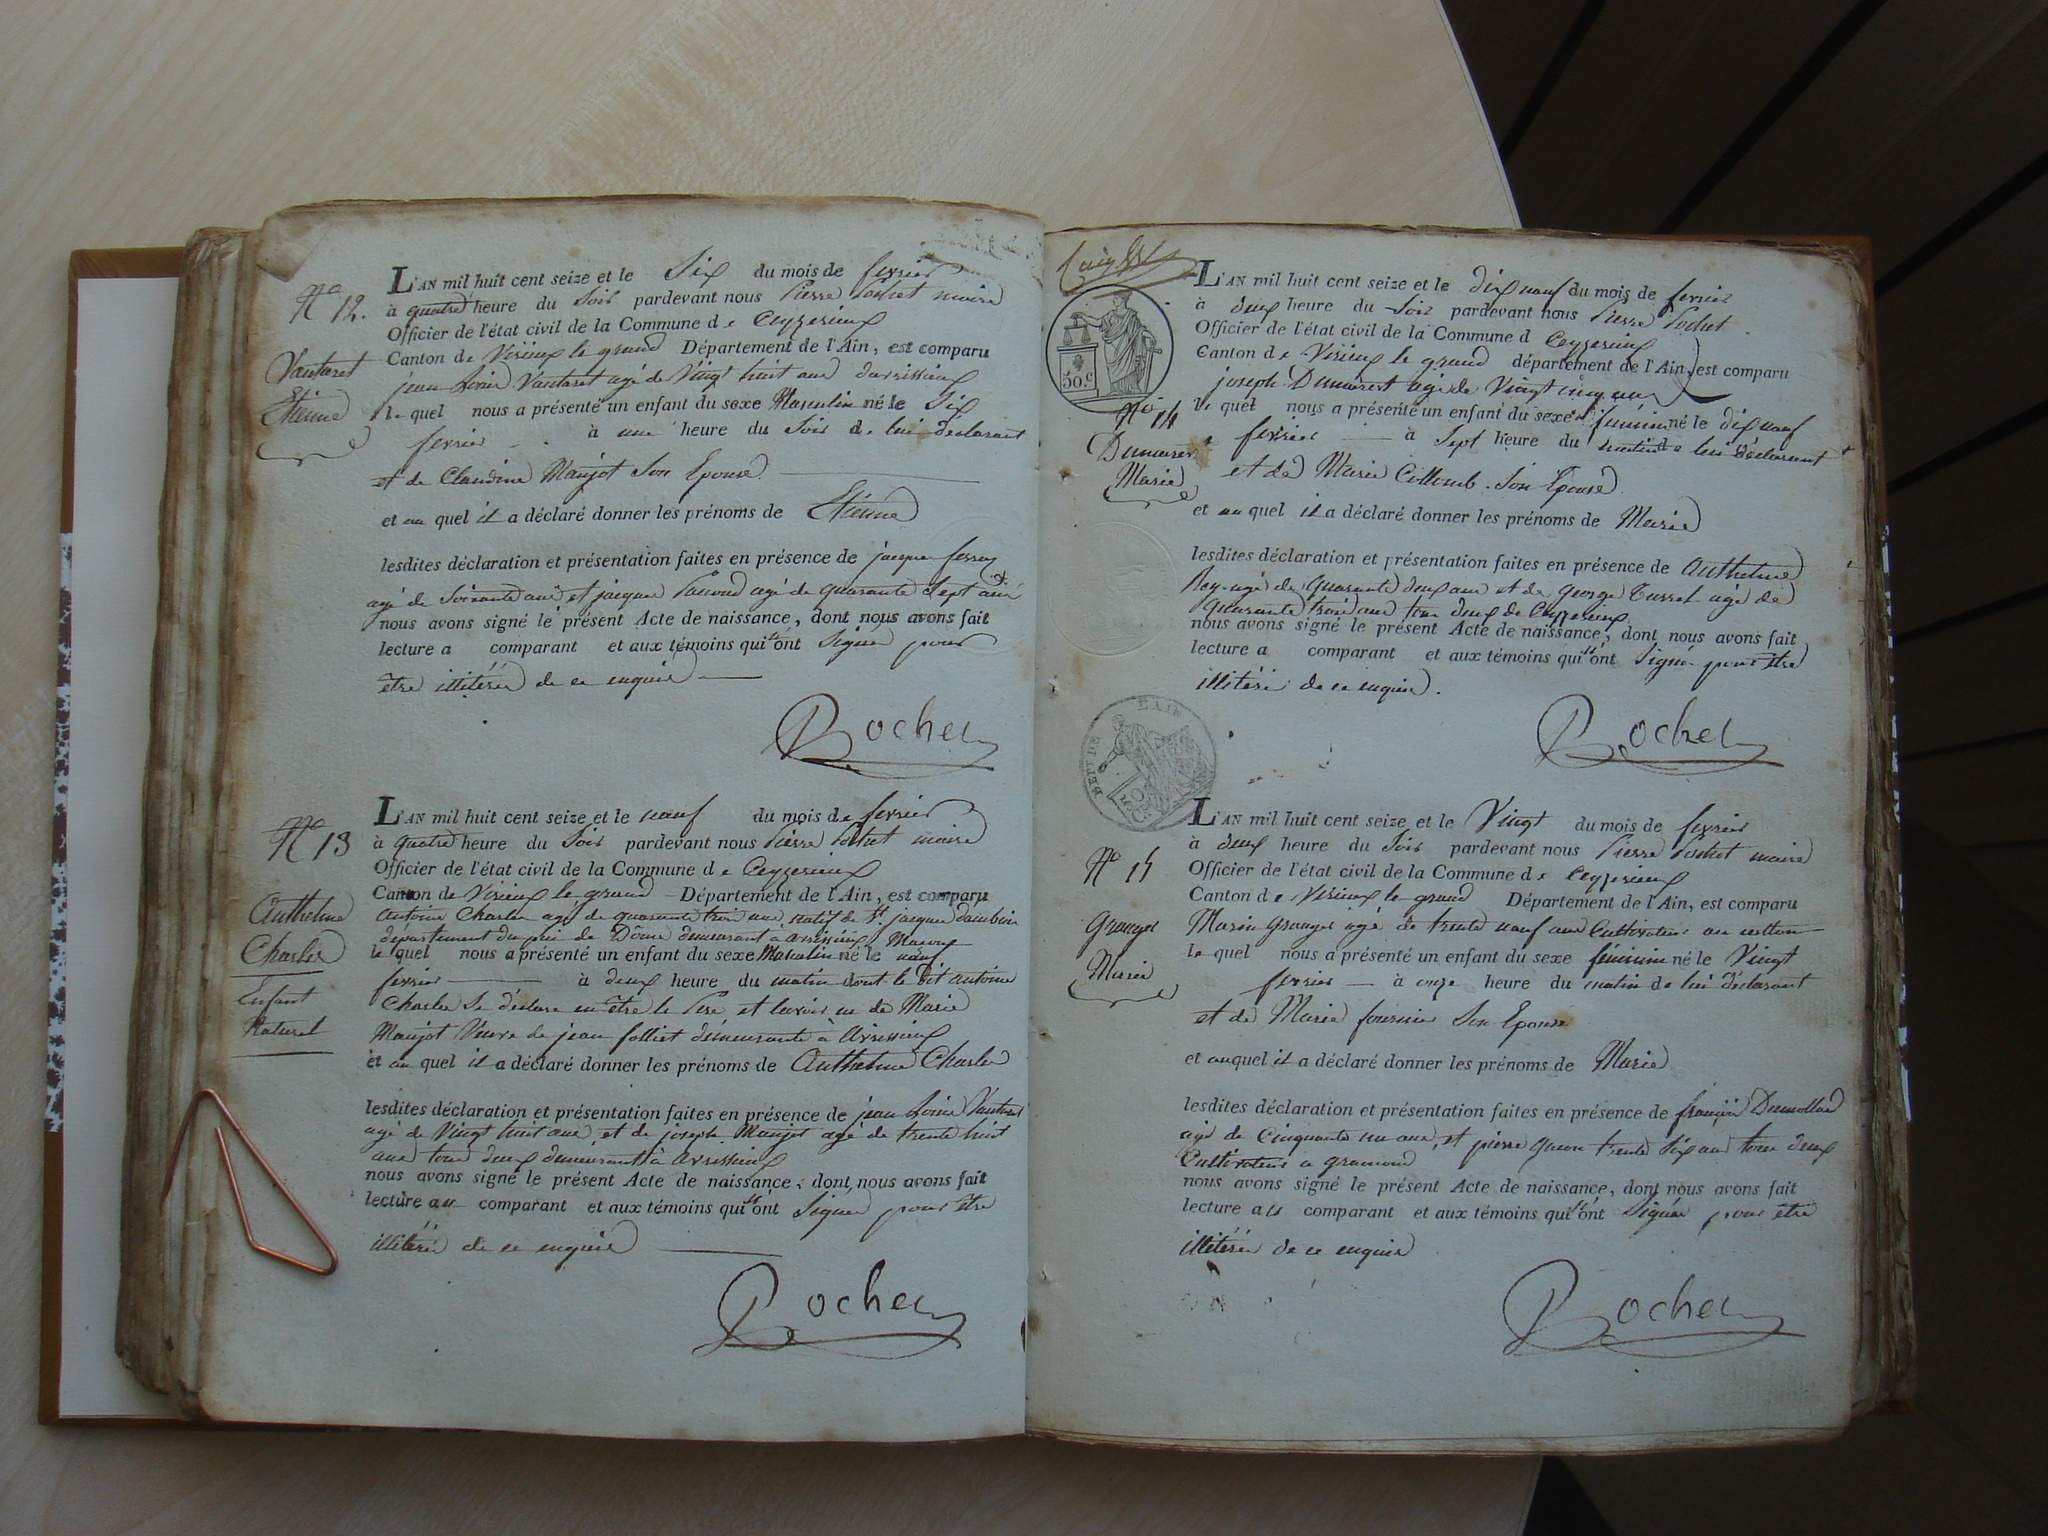 N.o 12.
Vautaret
Etienne
L'AN mil huit cent seize et le Six du mois de fevrier
à quatre heure du Soir pardevant nous Pierre Pochet maire
Officier de l'état civil de la Commune de Ceyzerieux
Canton de Virieux le grand Département de l'Ain, est comparu
jean Vautaret agé de Vingt huit ans
le quel nous a présenté un enfant du sexe Masculin né le Six
fevrier à une heure du Soir de lui declarant
et de Claudine Maujot Son Epouse
et au quel il a déclaré donner les prénoms de Etienne
lesdites déclaration et présentation faites en présence de jacque ferroy
agé de Soixante ans et jacque agé de quarante Sept ans
nous avons signé le présent Acte de naissance, dont nous avons fait
lecture a comparant et aux témoins qui n'ont Signé pour
être illitéré de ce enquis
Pochet
N.o 13
Anthelme
Charles
Enfant
Naturel
L'AN mil huit cent seize et le neuf du mois de fevrier
à quatre heure du Soir pardevant nous Pierre Pochet maire
Officier de l'état civil de la Commune de Ceyzerieux
Canton de Virieux le grand Département de l'Ain, est comparu
antoine Charles agé de quarante trois ans natif de St jacque d'ambur
département du pui de Dôme demeurant à avrissieux Macon
le quel nous a présenté un enfant du sexe Masculin né le neuf
fevrier à deux heure du matin dont le dit antoine
Charles Se déclare en être le Pere et l'avoir eu de Marie
Maujot Veuve de jean folliet démeurante à Avrissieux
et au quel il a déclaré donner les prénoms de Anthelme Charles
lesdites déclaration et présentation faites en présence de jean Vautaret
agé de Vingt huit ans et de joseph Maujot agé de trente huit
ans tous deux demeurants à avrissieux
nous avons signé le présent Acte de naissance, dont nous avons fait
lecture au comparant et aux témoins qui n'ont Signés pour être
illitéré de ce enquis
Pochet
50.c
N.o 14
Dumarest
Marie
L'AN mil huit cent seize et le dix neuf du mois de fevrier
à deux heure du Soir pardevant nous Pierre Pochet
Officier de l'état civil de la Commune d Ceyzerieux
Canton de Virieux le grand département de l'Ain, est comparu
joseph Dumarest agé de Vingt cinq ans
le quel nous a présenté un enfant du sexe féminin né le dix neuf
fevrier à Sept heure du matin de lui déclarant
et de Marie Collomb Son Epouse
et au quel il a déclaré donner les prénoms de Marie
lesdites déclaration et présentation faites en présence de Anthelme
Rey agé de Quarante deux ans et de George Turrel agé de
Quarante trois ans tous deux de Ceyzerieux
nous avons signé le présent Acte de naissance, dont nous avons fait
lecture a comparant et aux témoins qui n'ont Signé pour être
illitéré de ce enquis.
Pochet
DEPT DE L'AIN
50
N.o 15
Granger
Marie
L'AN mil huit cent seize et le Vingt du mois de fevrier
à deux heure du Soir pardevant nous Pierre Pochet maire
Officier de l'état civil de la Commune de Ceyzerieux
Canton de Virieux le grand Département de l'Ain, est comparu
Marin Granger agé de trente neuf ans Cultivateur
le quel nous a présenté un enfant du sexe féminin né le Vingt
fevrier à onze heure du matin de lui déclarant
et de Marie fournier Son Epouse
et auquel il a déclaré donner les prénoms de Marie
lesdites déclaration et présentation faites en présence de françois Dumollard
agé de Cinquante un ans, et pierre trente Six ans tous deux
Cultivateurs a gramond
nous avons signé le présent Acte de naissance, dont nous avons fait
lecture au comparant et aux témoins qui n'ont Signés pour être
illitérés de ce enquis
Pochet